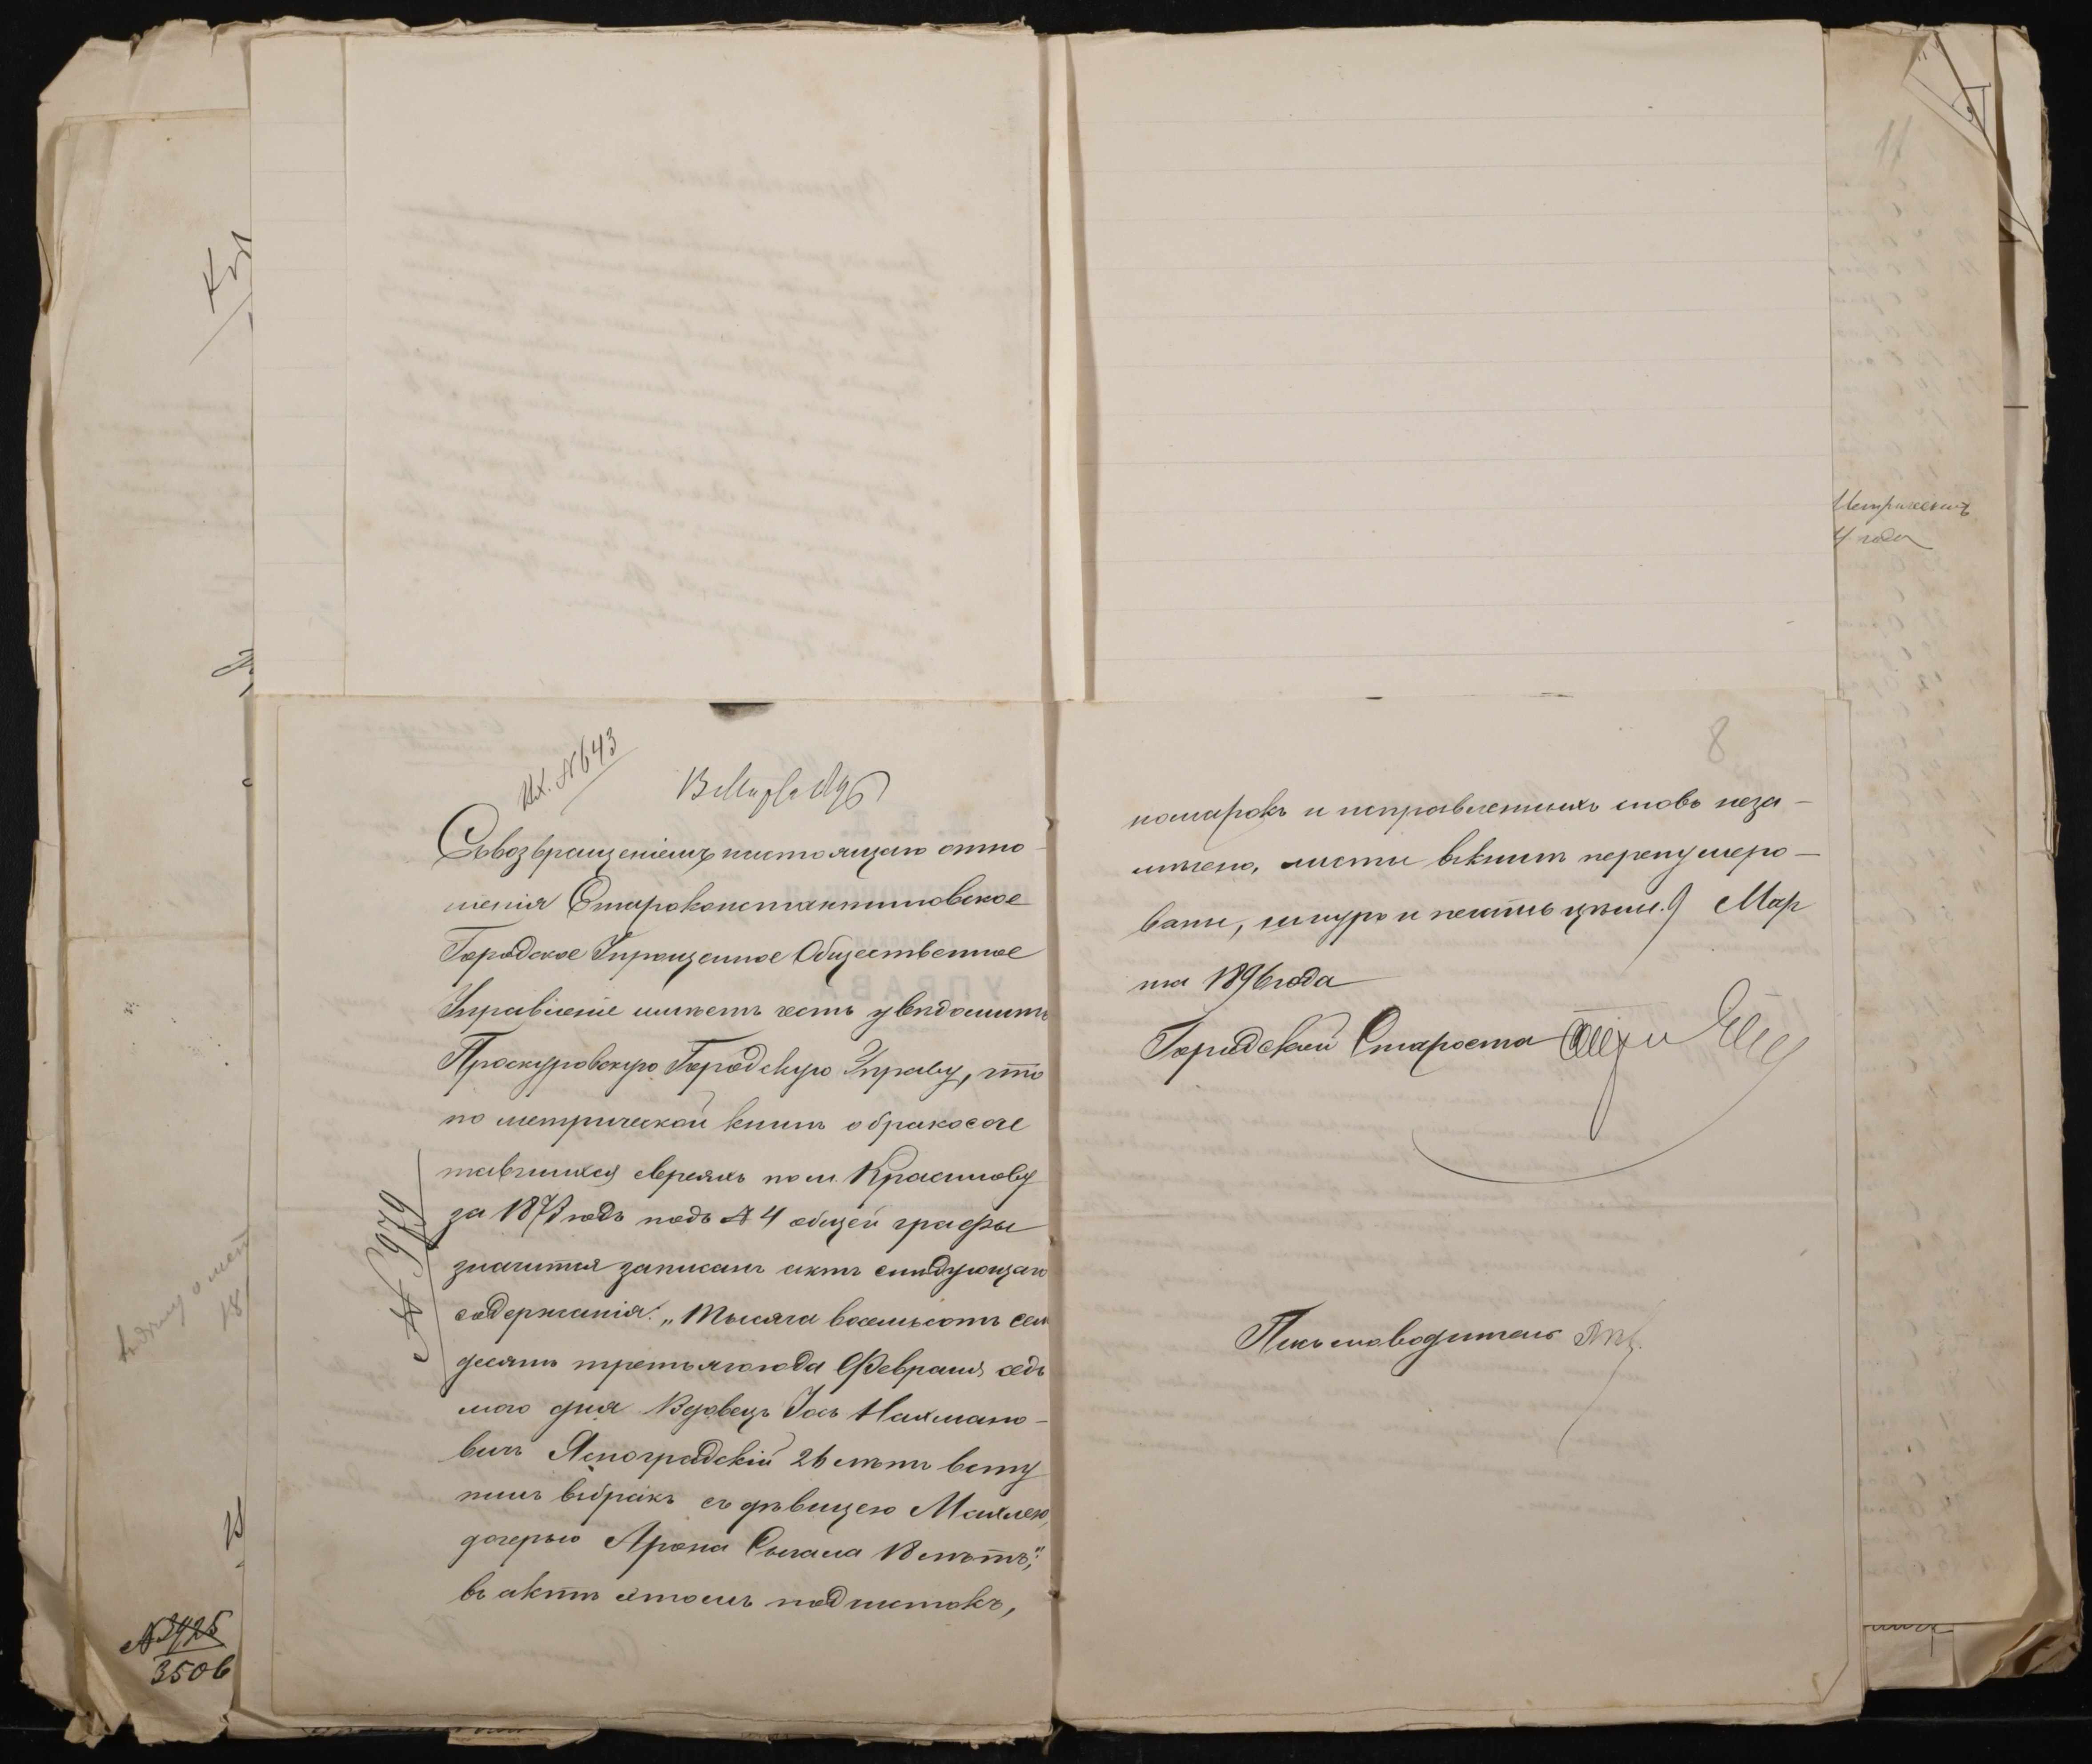 Вх. № 643
13 Марта 96
Съ возвращеніемъ настоящаго отно-
шенія Староконстантиновское
Городское Упрощенное Общественное
Управленіе имѣетъ честь увѣдомить
Проскуровскую Городскую Управу, что
по метрической книгѣ о бракосоче
тавшихся евреяхъ по м. Красилову
за 1873 годъ подъ № 4 общей графы
значится записанъ актъ слѣдующаго
содержанія: „Тысяча восемьсотъ сем
десятъ третьяго года Февраля седь
мого дня Вдовецъ Іось Нахмано-
вичъ Ясноградскій 26 лѣтъ всту
пилъ въ бракъ съ дѣвицею Махлею,
дочерью Арона Сыгала 18 лѣтъ“;
въ актѣ этомъ подчистокъ,
№ 979
8
помарокъ и исправленныхъ словъ неза-
мѣчено, листы въ книгѣ перенумеро-
ваны, шнуръ и печать цѣлы. 9 Мар
та 1896 года
Городской Староста
Письмоводитель
11
Метрическихъ
4 года
№ 3425
3506